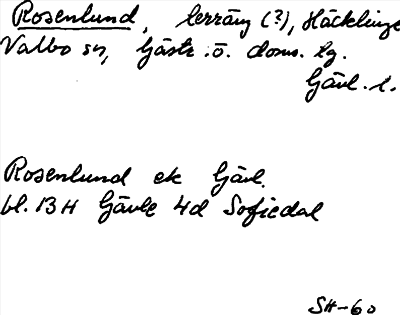 Rosenlund, terräng (?), Häcklinge
Valbo sn, Gästr. ö. doms. tg.
Gävl. l.
Rosenlund ek Gävl.
bl. 13H Gävle 4d Sofiedal
SH-60